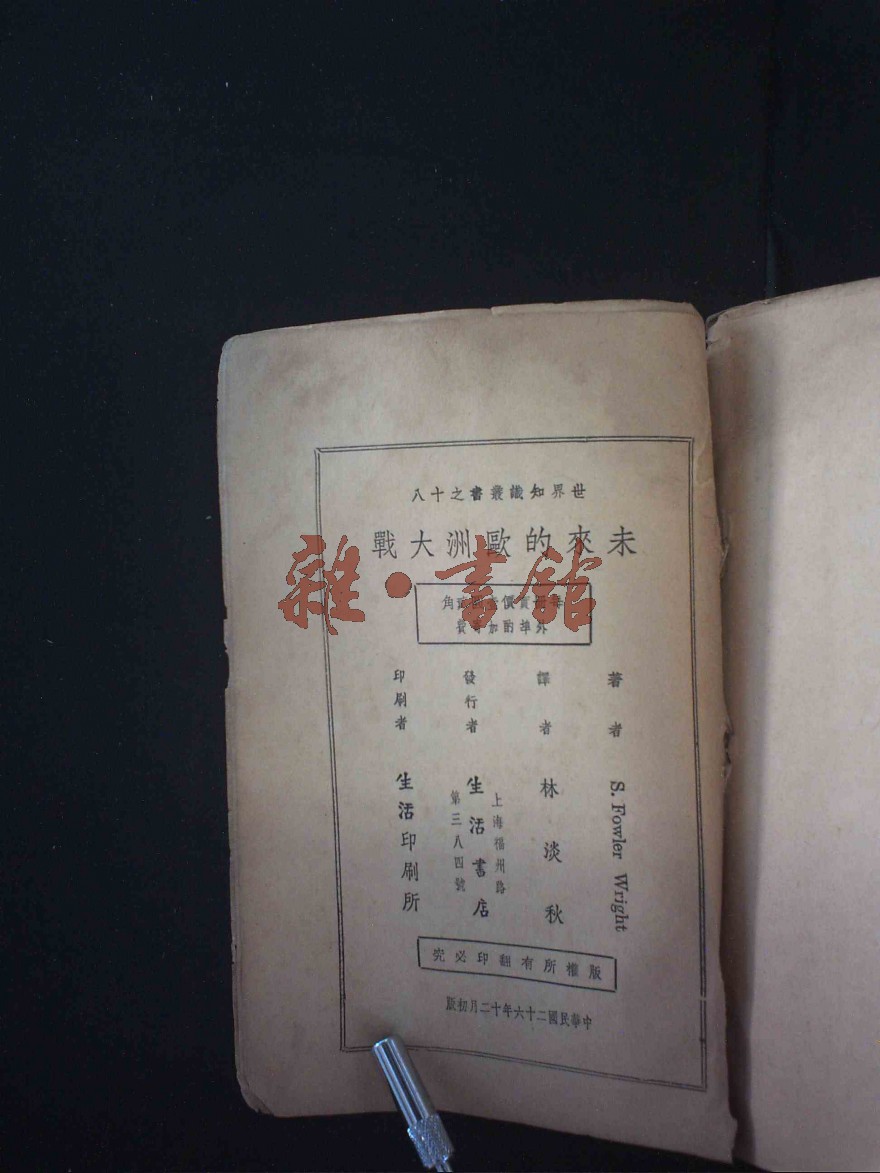 世界知識叢書之十八
未來的歐洲大戰
外埠酌加寄費
著者 S. Fowler Wright
譯者 林淡秋
發行者 生活書店
上海福州路
第三八四號
印刷者 生活印刷所
版權所有翻印必究
中華民國二十六年十二月初版
雜·書館